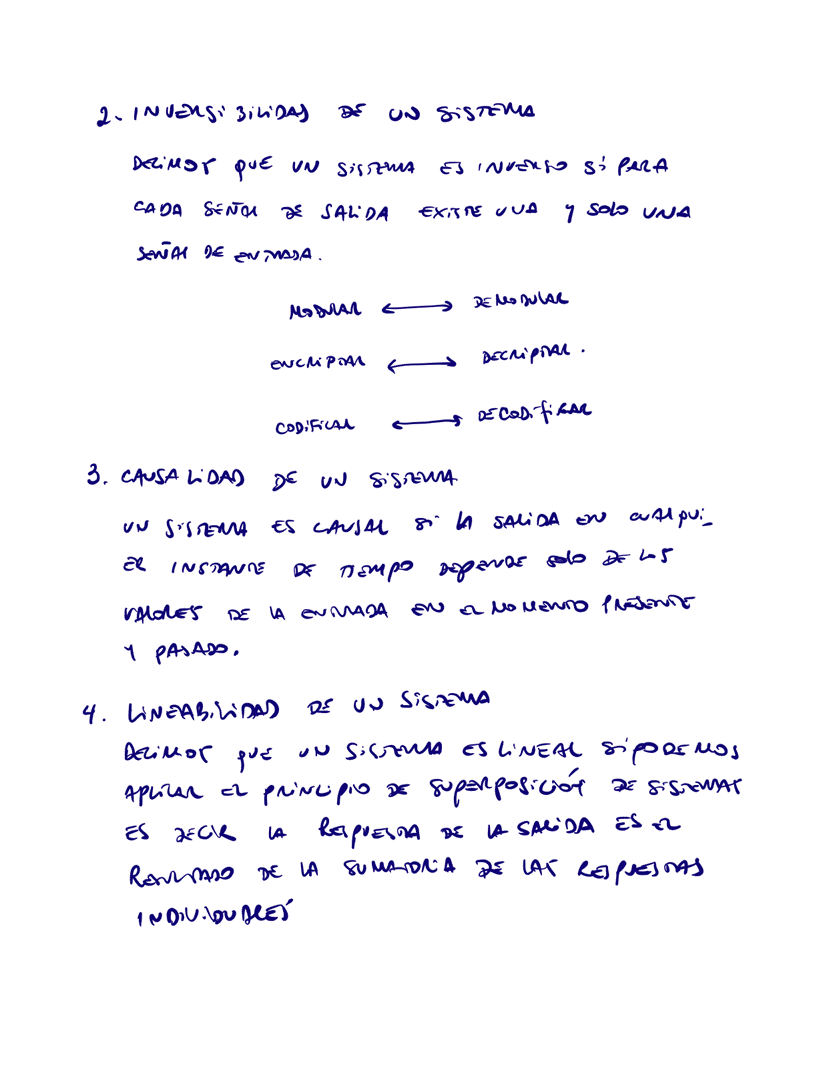 2. INVERSIBILIDAD DE UN SISTEMA
DECIMOS QUE UN SISTEMA ES INVERSO SI PARA
CADA SEÑAL DE SALIDA EXISTE UNA Y SOLO UNA
SEÑAL DE ENTRADA.
MODULAR ⟷ DEMODULAR
ENCRIPTAR ⟷ DECRIPTAR.
CODIFICAR ⟷ DECODIFICAR
3. CAUSALIDAD DE UN SISTEMA
UN SISTEMA ES CAUSAL SI LA SALIDA EN CUALQUI_
ER INSTANTE DE TIEMPO DEPENDE SOLO DE LOS
VALORES DE LA ENTRADA EN EL MOMENTO PRESENTE
Y PASADO.
4. LINEABILIDAD DE UN SISTEMA
DECIMOS QUE UN SISTEMA ES LINEAL SI PODEMOS
APLICAR EL PRINCIPIO DE SUPERPOSICIÓN DE SISTEMAS
ES DECIR LA RESPUESTA DE LA SALIDA ES EL
RESULTADO DE LA SUMATORIA DE LAS RESPUESTAS
INDIVIDUALES